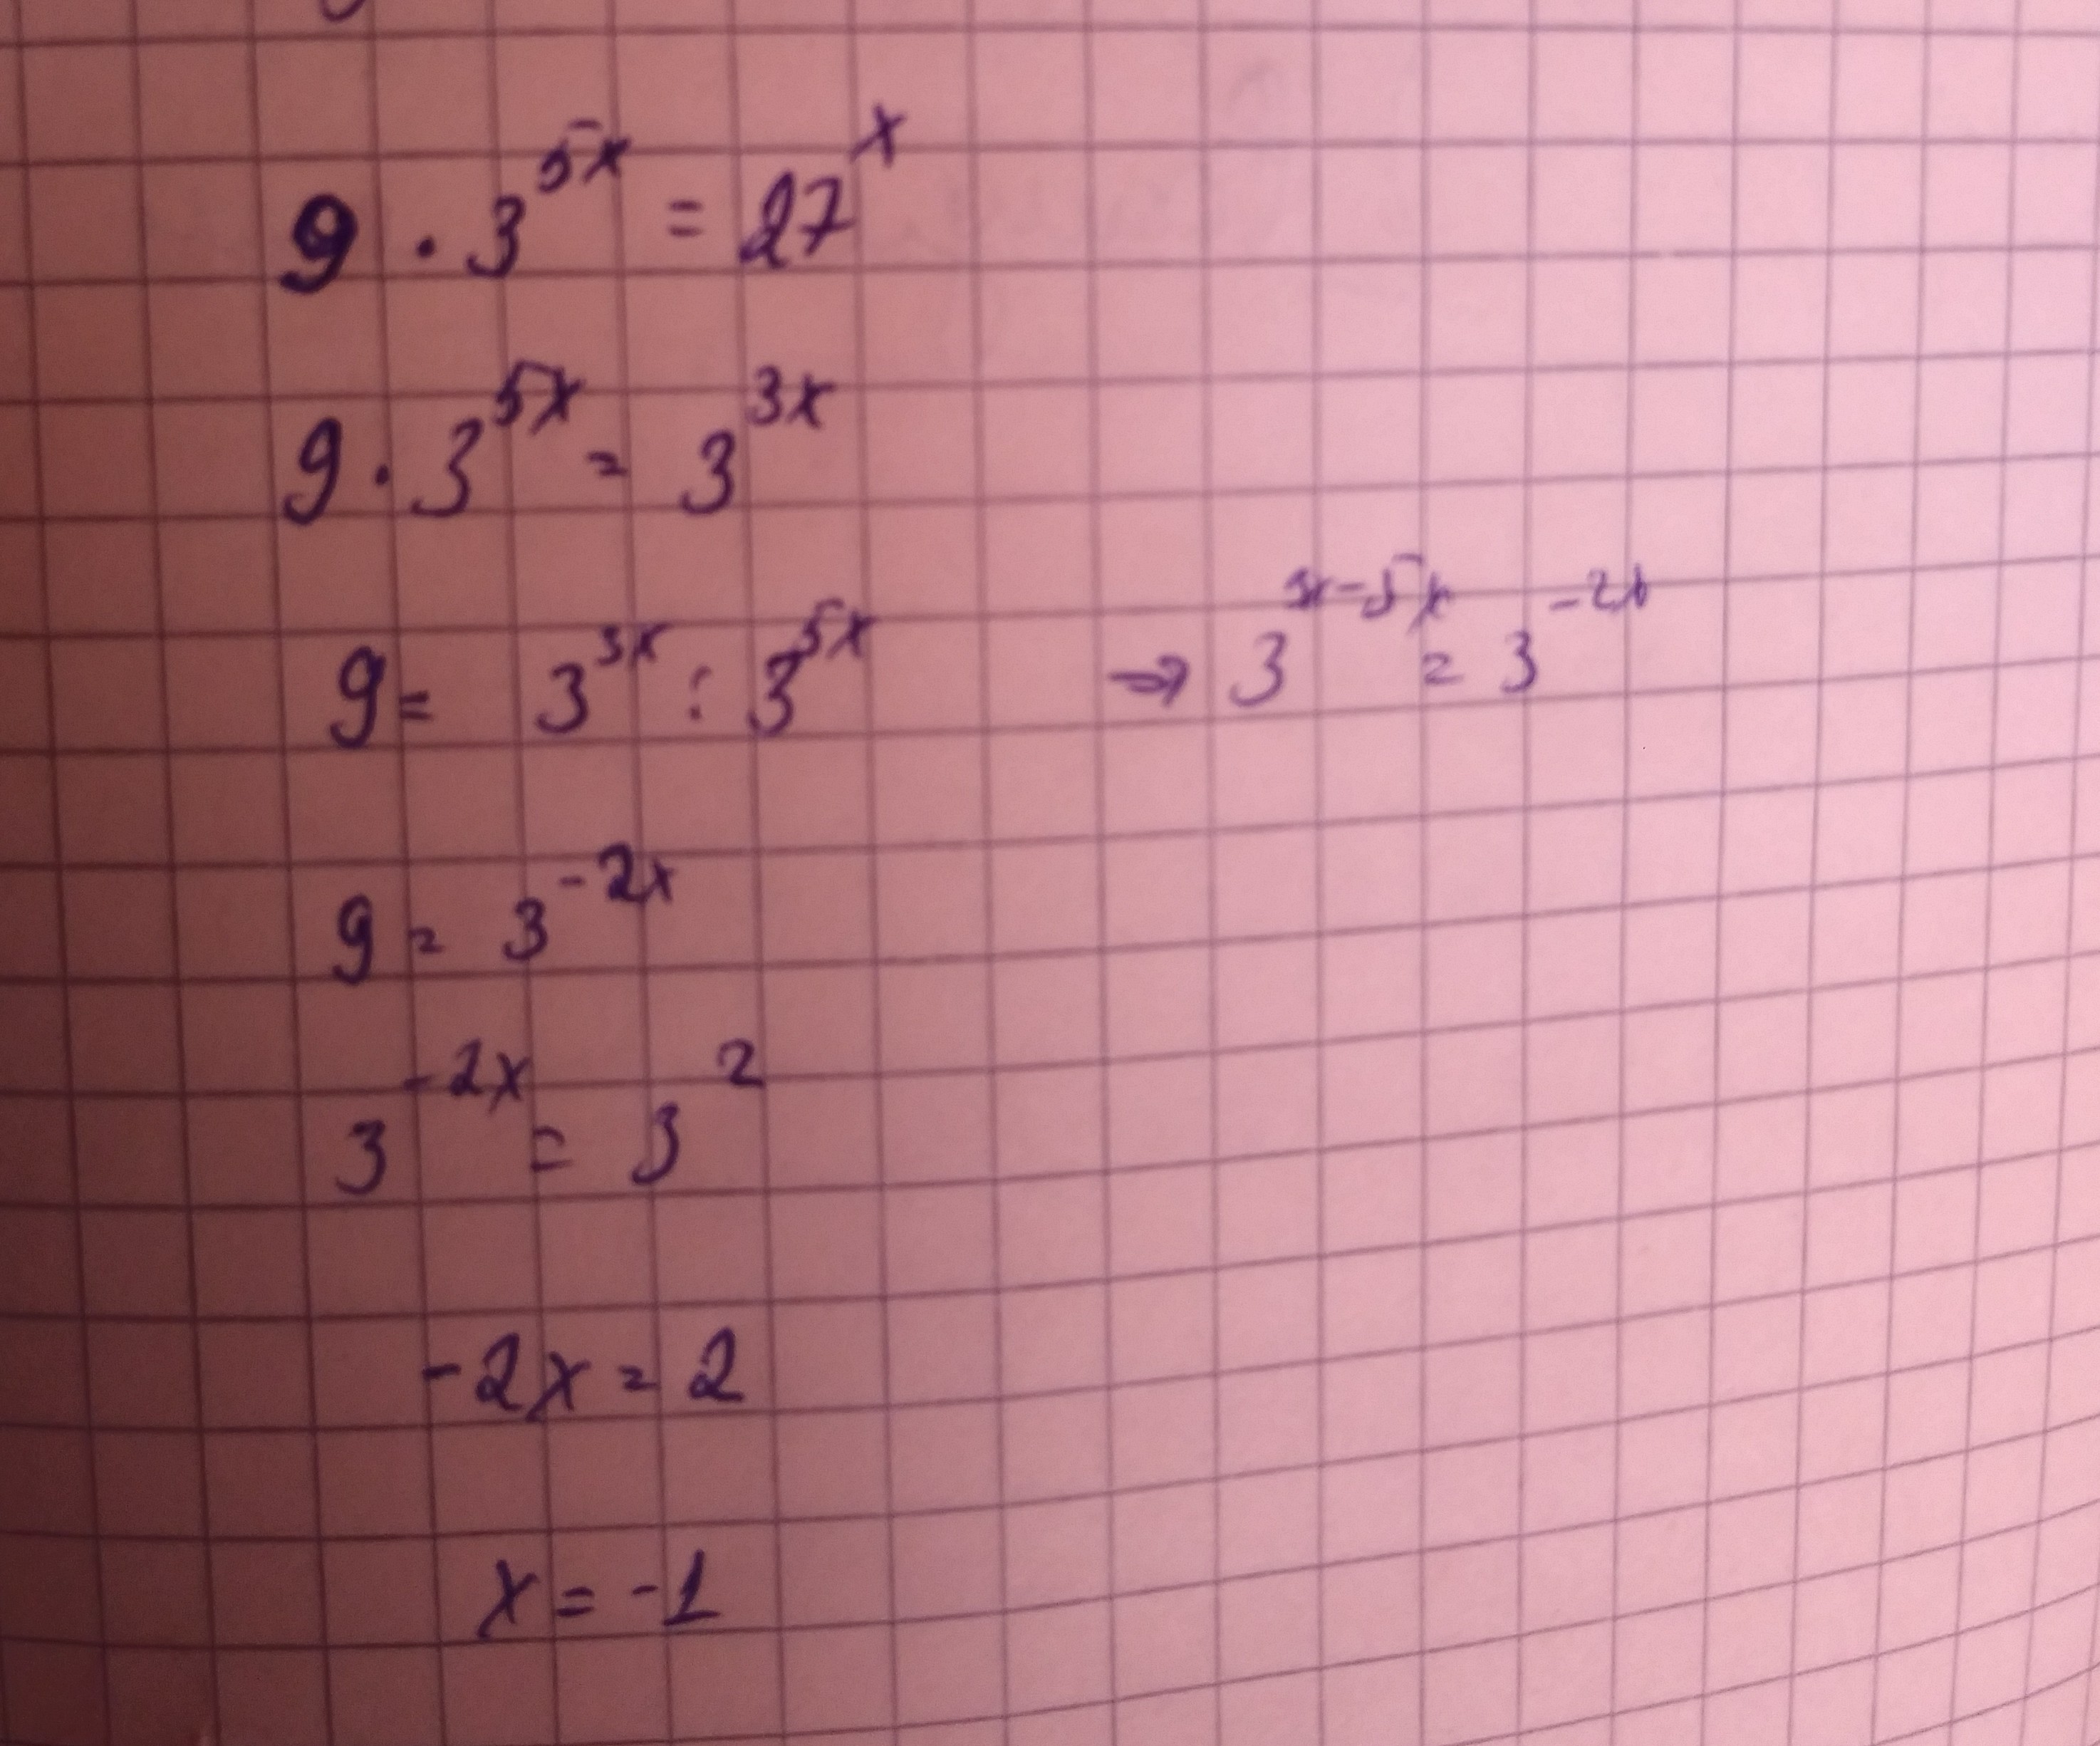 9 · 3^5x = 27^x
9 · 3^5x = 3^3x
9 = 3^3x : 3^5x → 3^3x-5x = 3^-2x
9 = 3^-2x
3^-2x = 3^2
-2x = 2
x = -1